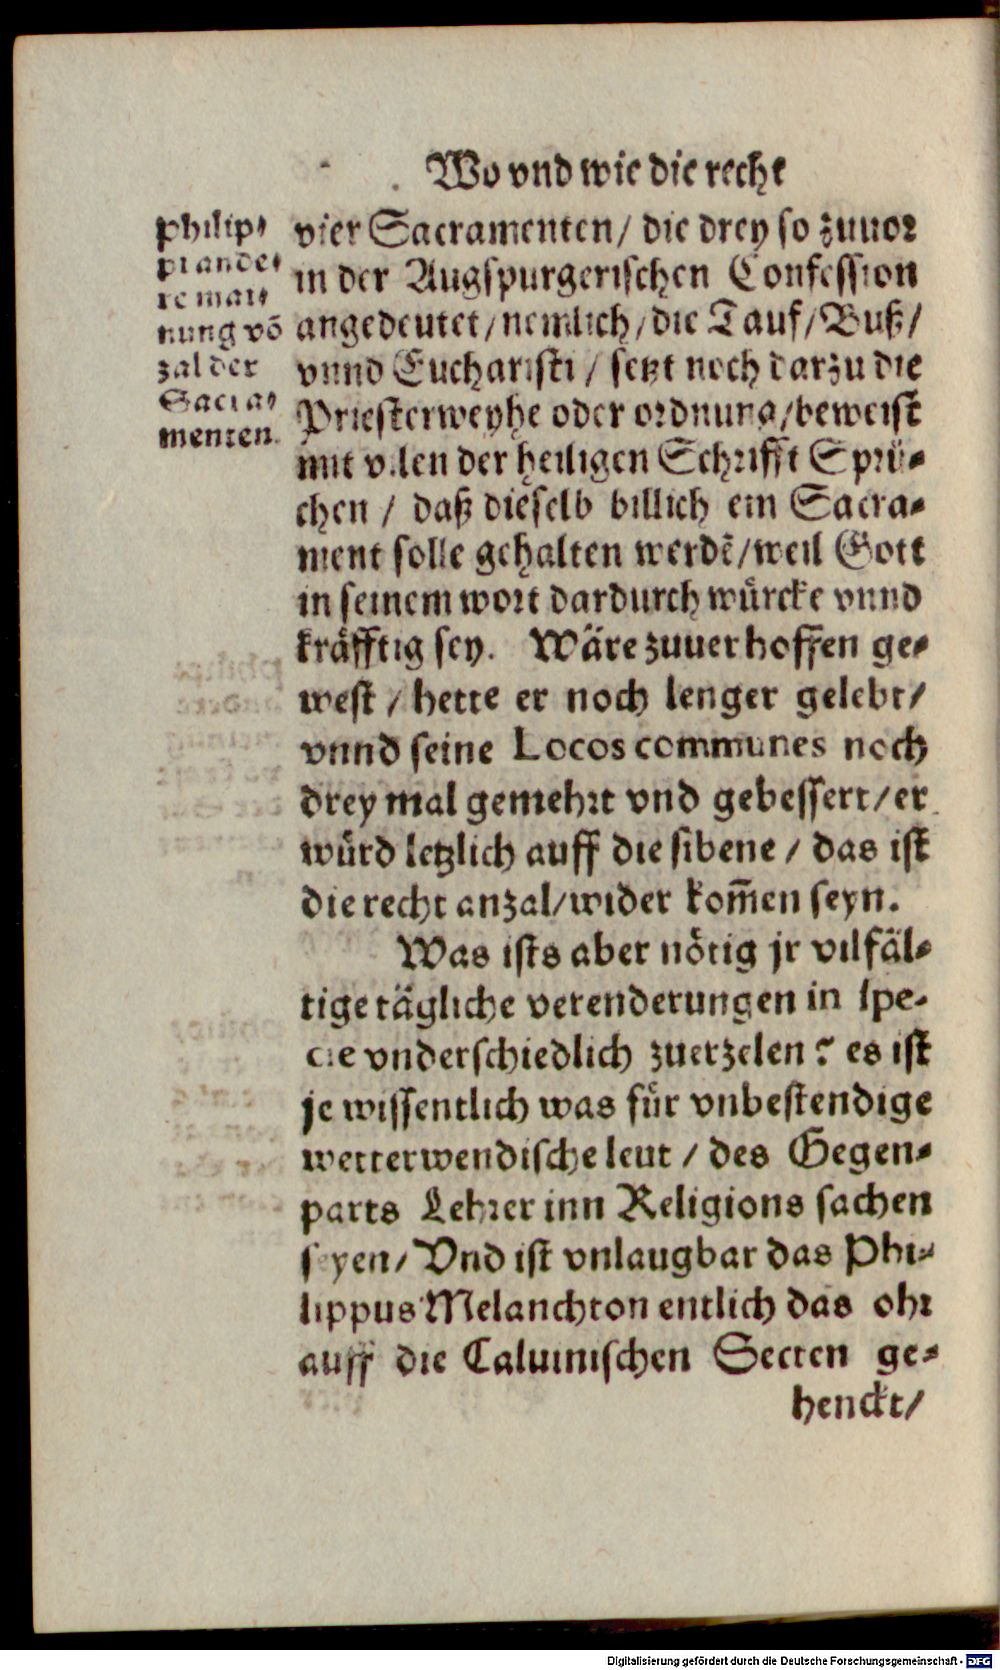 Wo vnd wie die recht
Philip⸗
pi ande⸗
re mai⸗
nung võ
zal der
Sacra⸗
menten.
vier Sacramenten / die drey so zuuor
in der Augspurgerischen Confession
angedeutet / nemlich / die Tauf / Buß /
vnnd Eucharisti / setzt noch darzu die
Priesterweyhe oder ordnung / beweist
mit vilen der heiligen Schrifft Sprü⸗
chen / daß dieselb billich ein Sacra⸗
ment solle gehalten werdẽ / weil Gott
in seinem wort dardurch würcke vnnd
kräfftig sey. Wäre zuuerhoffen ge⸗
west / hette er noch lenger gelebt /
vnnd seine Locos communes noch
drey mal gemehrt vnd gebessert / er
würd letzlich auff die sibene / das ist
die recht anzal / wider kom̃en seyn.
Was ists aber nötig jr vilfäl⸗
tige tägliche verenderungen in spe⸗
cie vnderschiedlich zuerzelen? es ist
je wissentlich was für vnbestendige
wetterwendische leut / des Gegen⸗
parts Lehrer inn Religions sachen
seyen / Vnd ist vnlaugbar das Phi⸗
lippus Melanchton entlich das ohr
auff die Caluinischen Secten ge⸗
henckt /
Digitalisierung gefördert durch die Deutsche Forschungsgemeinschaft - DFG